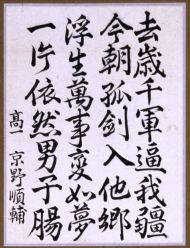 去歳千軍逼我疆
今朝孤剣入他郷
浮生萬事変如夢
一片依然男子腸
高一 京野順輔